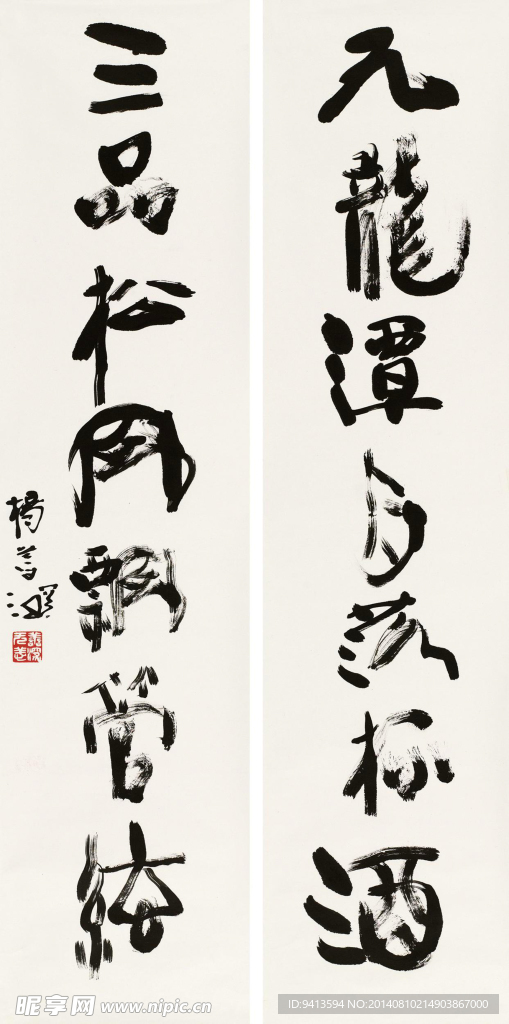 九龍潭月落杯酒
三品松風飄管絃
楊善深
昵享网 www.nipic.cn
ID:9413594 NO:20140810214903867000